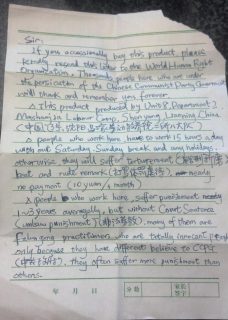 Sir:
If you occassionally buy this product, please
kindly resend this letter to the World Human Right
Organization. Thousands people here who are under
the persicution of the Chinese Communist Party Government
will thank and remember you forever.
This product produced by Unit 8, Department 2
Mashanjia Labour Camp, Shen Yang Liaoning China
people who work here, have to work 15 hours a day
without Saturday, Sunday break and any holidays,
otherwise, they will suffer torturement
beat and rude remark nearly
no payment (10 yuan/1 month)
people who work here, suffer punishment nearly
1~3 years averagelly, but without Court Sentence
(unlaw punishment) many of them are
Falun gong practitioners, who are totally innocent people
only because they have different believe to CCPG
they often suffer more punishment than
others.
年 月 日